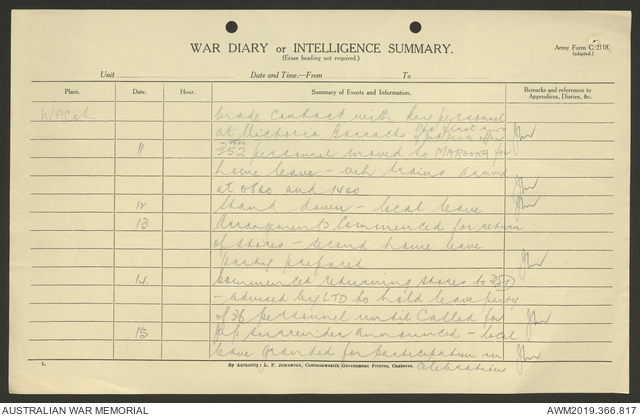 WAR DIARY or INTELLIGENCE SUMMARY.
(Erase heading not required.)
Army Form C. 2118.
(adapted.)
Unit
Date and Time.—From To
Place. Date. Hour. Summary of Events and Information. Remarks and references to Appendices, Diaries, &c.
WACOL made contact with personnel
at Victoria Barracks
11 252 personnel moved to MAROOKA for
home leave – veh trains arrived
at 0800 and 1400
12 Stand down – local leave
13 Arrangements commenced for return
of stores – second home leave
party prepared
14 Commenced returning stores to
– advised by LTD to hold leave party
of 36 personnel until called for
15 Jap surrender announced – local
leave granted for participation in
celebrations
L.
By Authority: L. F. Johnston, Commonwealth Government Printer, Canberra.
AUSTRALIAN WAR MEMORIAL
AWM2019.366.817